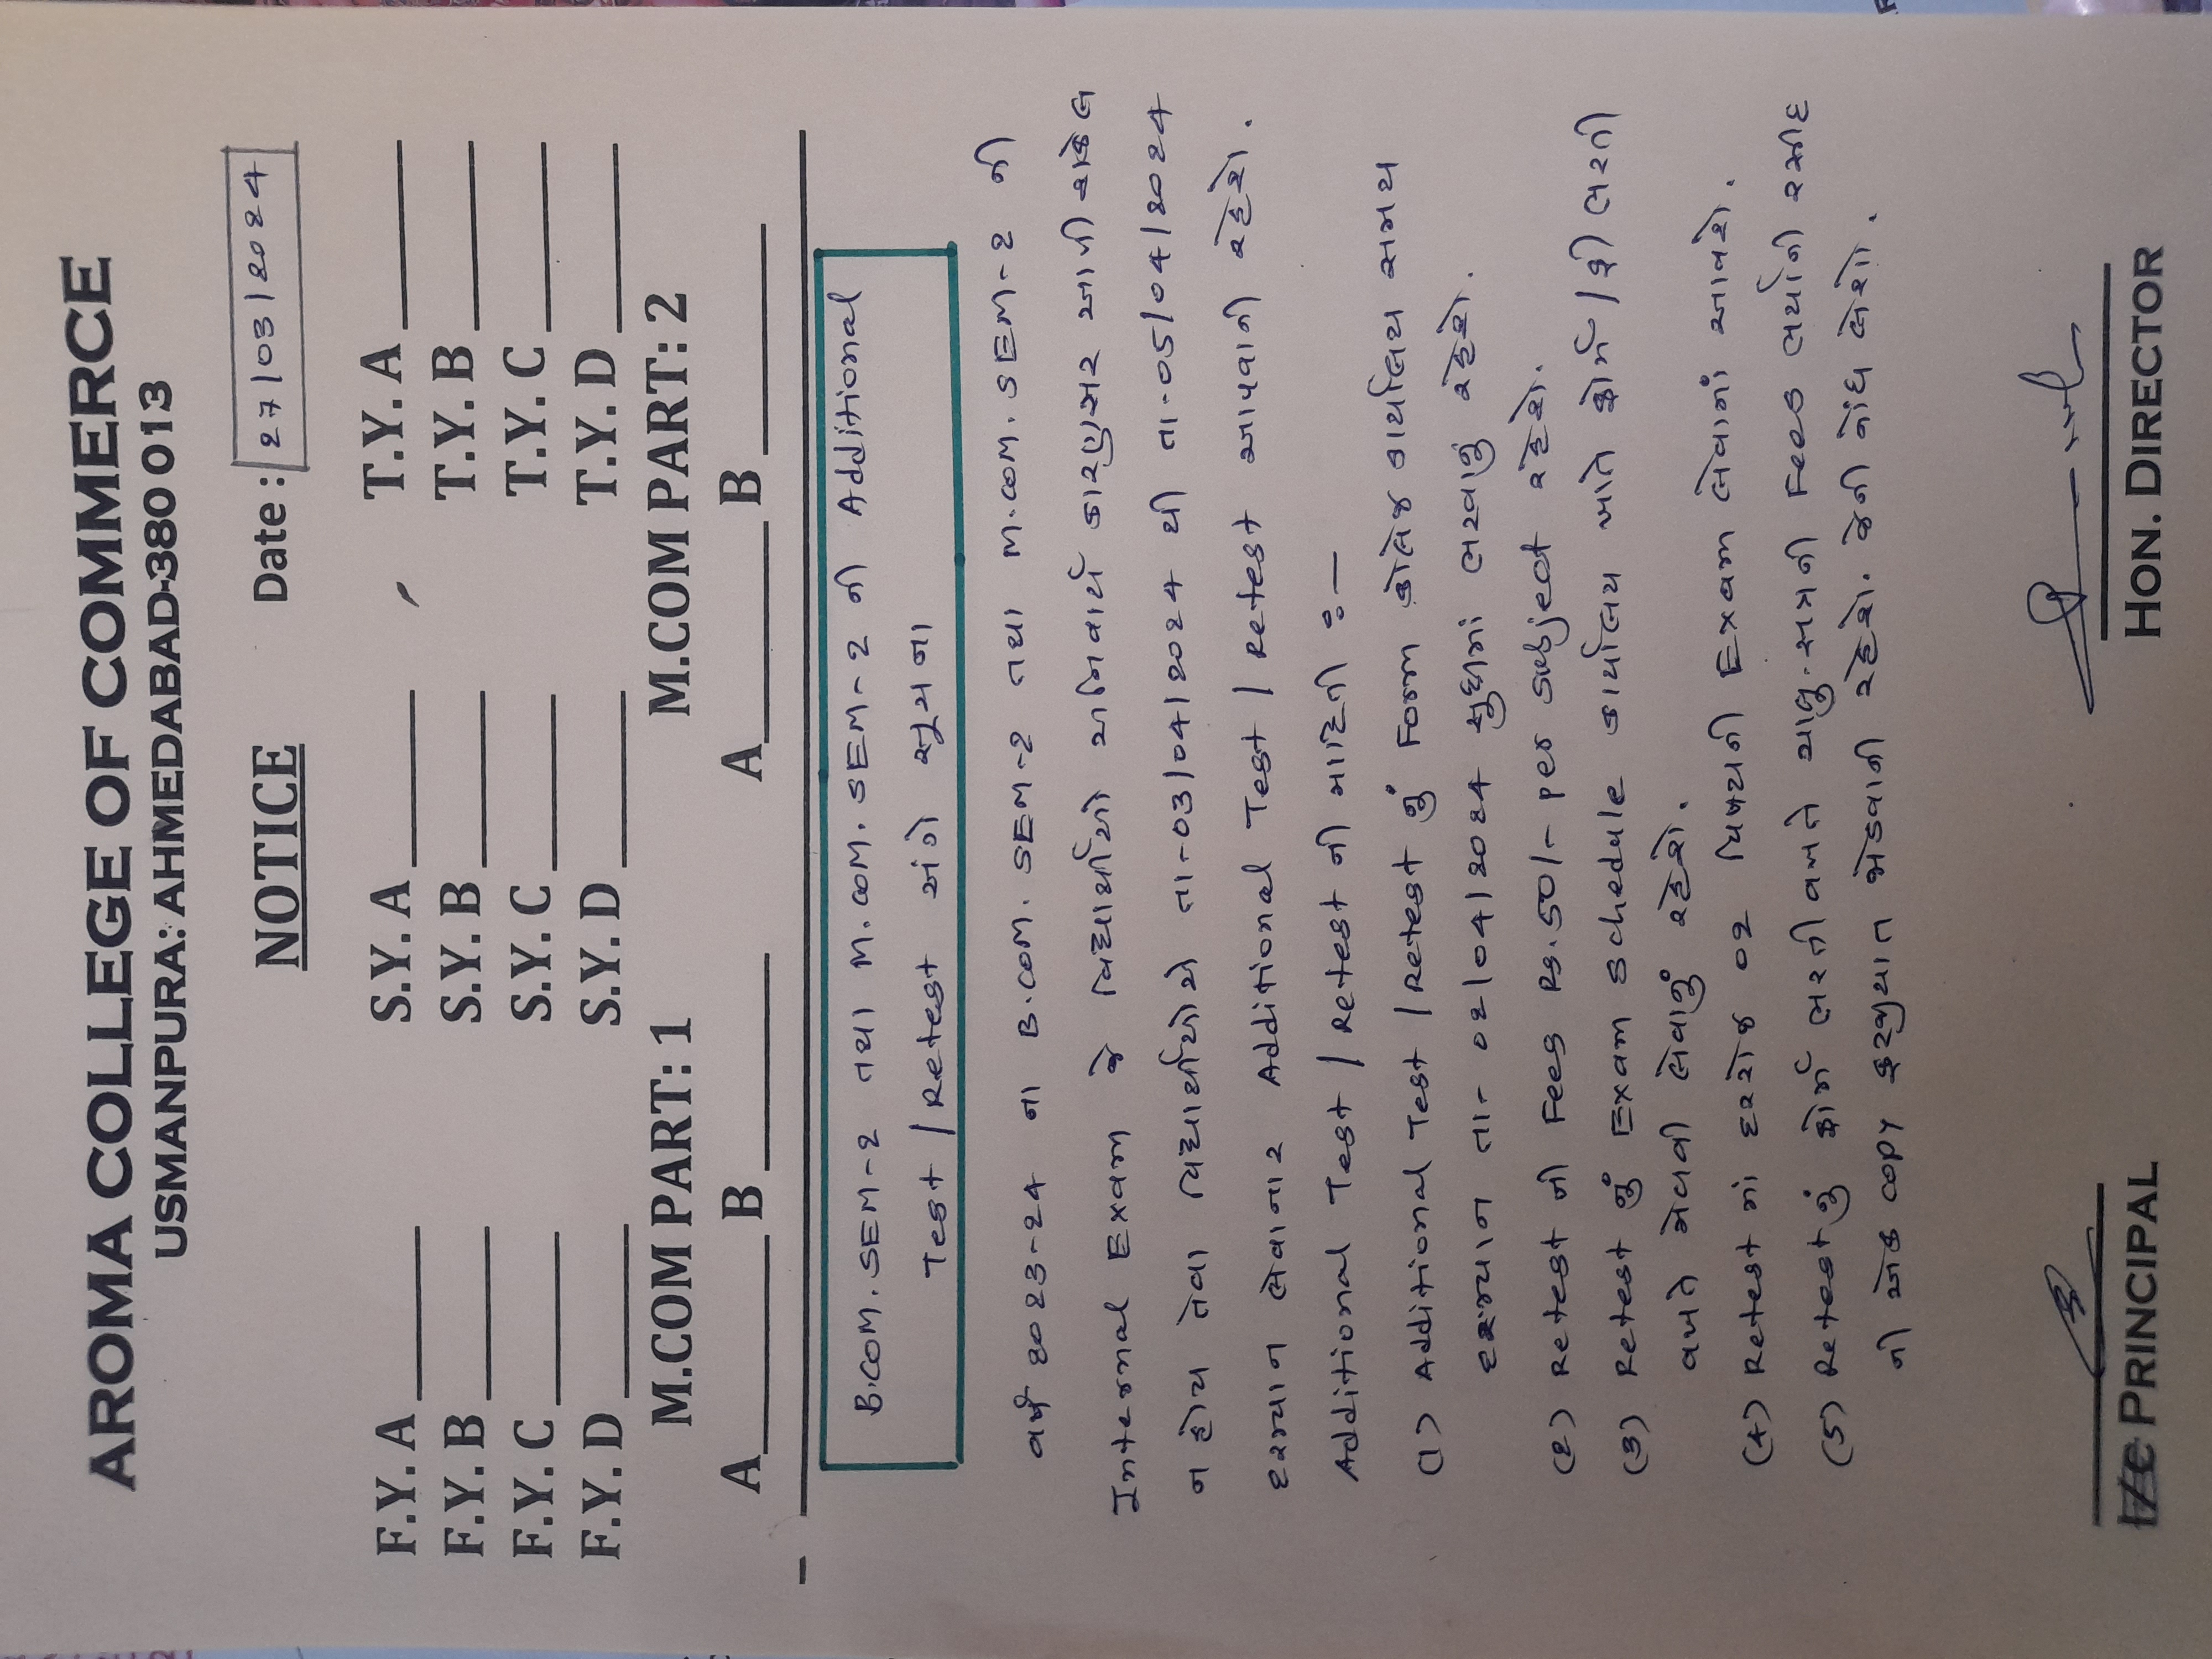 AROMA COLLEGE OF COMMERCE
USMANPURA: AHMEDABAD-380 013
NOTICE Date: 27/03/2024
F.Y. A S.Y. A T.Y. A
F.Y. B S.Y. B T.Y. B
F.Y. C S.Y. C T.Y. C
F.Y. D S.Y. D T.Y. D
M.COM PART: 1 M.COM PART: 2
A B A B
B.COM. SEM-2 તથા M.COM. SEM-2 ની Additional
Test / Retest અંગે સૂચના
વર્ષ 2023-24 ના B.COM. SEM-2 તથા M.COM. SEM-2 ની
Internal Exam જે વિદ્યાર્થીઓ અનિવાર્ય કારણસર આપી શકેલ
ન હોય તેવા વિદ્યાર્થીઓએ તા-03/04/2024 થી તા-05/04/2024
દરમ્યાન લેવાનાર Additional Test / Retest આપવાની રહેશે.
Additional Test / Retest ની માહિતી :-
(1) Additional Test / Retest નું Form કોલેજ કાર્યાલય સમય
દરમ્યાન તા- 02/04/2024 સુધીમાં ભરવાનું રહેશે.
(2) Retest ની Fees Rs.50/- per subject રહેશે.
(3) Retest નું Exam schedule કાર્યાલય ખાતે ફોર્મ/ફી ભરતી
વખતે મેળવી લેવાનું રહેશે.
(4) Retest માં દરરોજ 02 વિષયની Exam લેવામાં આવશે.
(5) Retest નું ફોર્મ ભરતી વખતે ચાલુ-સત્રની Fees ભર્યાની રસીદ
ની એક copy ફરજીયાત જોડવાની રહેશે. જેની નોંધ લેશો.
I/C PRINCIPAL HON. DIRECTOR